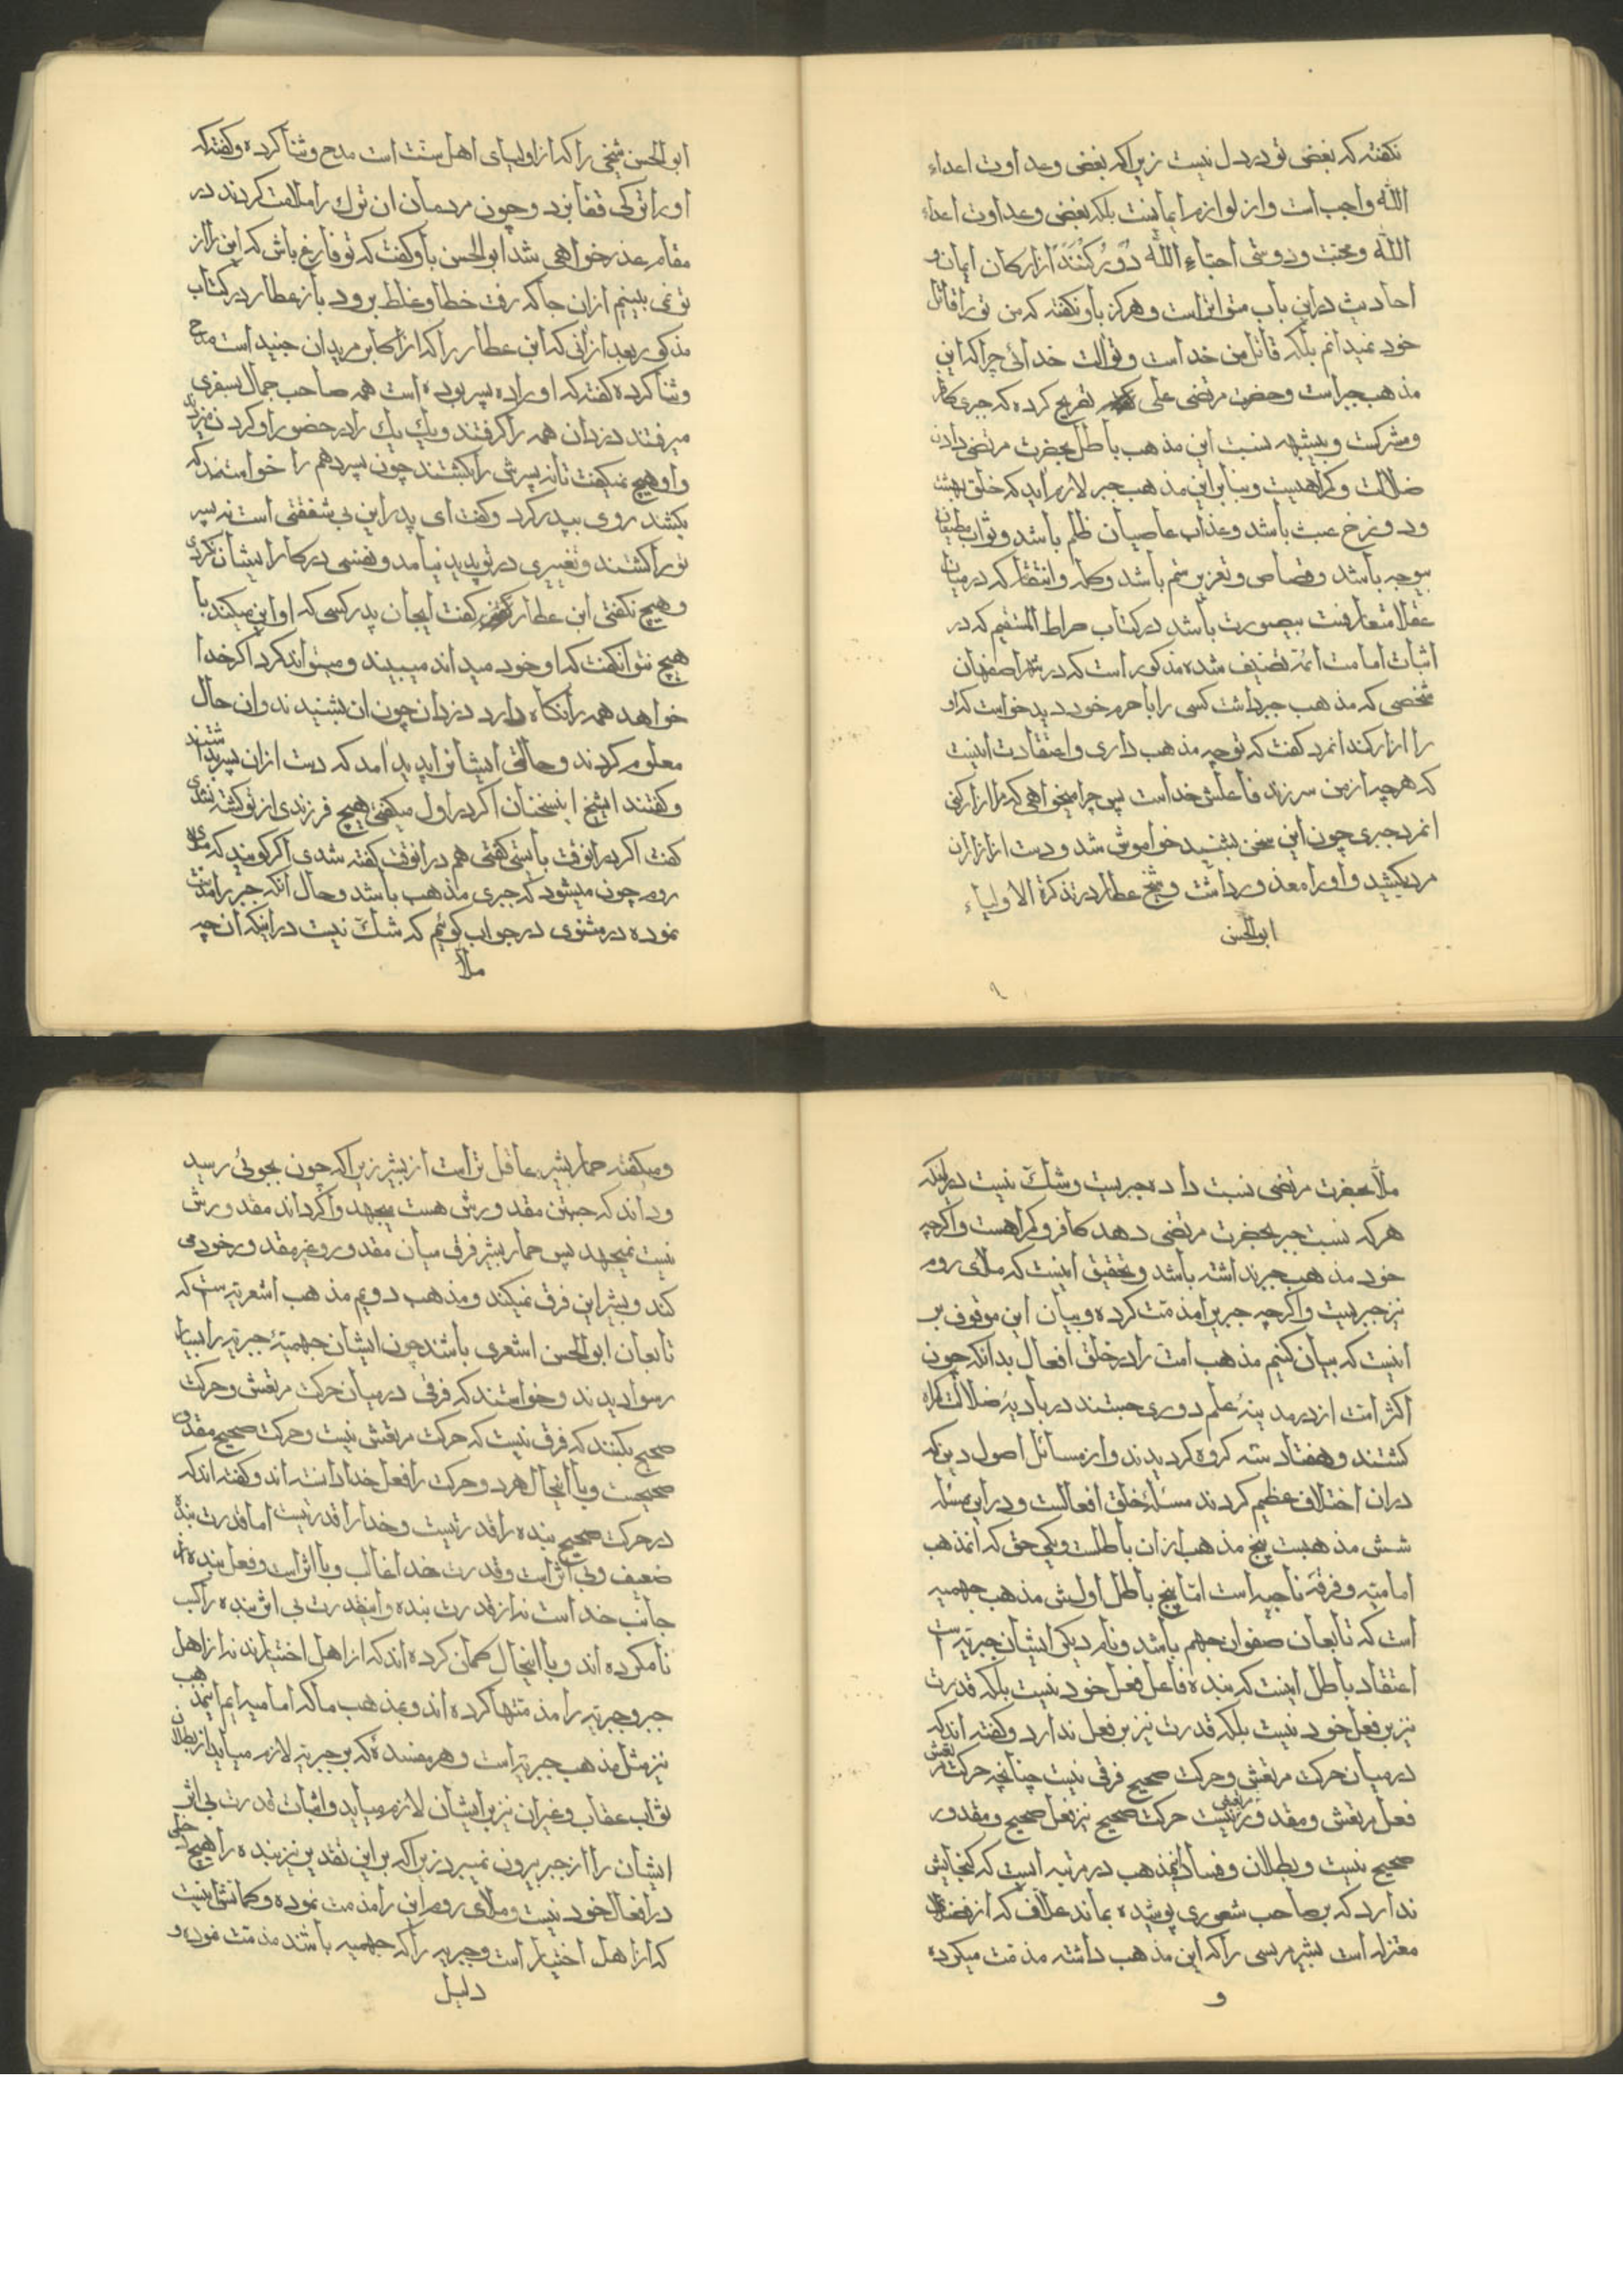 نکفته که بغض تو در دل نیست زیراکه بغض و عداوت اعداء
الله واجب است و از لوازم ایمانست بلکه بغض و عداوت اعداء
الله و محبت و دوستی احباء الله دو رکنند از ارکان ایمان و
احادیث در این باب متواتر است و هرکز باو نکفته که من تو را قاتل
خود نمیدانم بلکه قاتل من خداست و تو الت خدائی چراکه این
مذهب جبر است و حضرت مرتضی علی تصریح کرده که جبری کافر
و مشرکست و بیشبهه نسبت این مذهب باطل بحضرت مرتضی دادن
ضلالت و کمراهیست و بنابر این مذهب جبر لازم اید که خلق بهشت
و دوزخ عبث باشد و عذاب عاصیان ظلم باشد و ثواب مطیعان
بیوجه باشد و قصاص و تعزیر ستم باشد و کله و انتقام که در میان
عقلا متعارفست بیصورت باشد در کتاب صراط المستقیم که در
اثبات امامت ائمه تصنیف شده مذکور است که در شهر اصفهان
شخصی که مذهب جبر داشت کسی را با حرم خود دید خواست که او
را ازار کند انمرد کفت که تو چه مذهب داری و اعتقادت اینست
که هرچه از من سر زند فاعلش خداست پس چرا میخواهی که مرا ازار کنی
انمرد جبری چون این سخن بشنید خواموش شد و دست از ازار ان
مرد بکشید و او را معذور داشت و شیخ عطار در تذکرة الاولیاء
ابوالحسن
۹
ابوالحسن شیخی را که از اولیای اهل سنت است مدح و ثنا کرده و کفته که
او را ترکی قفا بزد و چون مردمان ان ترک را ملامت کردند در
مقام عذر خواهی شد ابوالحسن باو کفت که تو فارغ باش که این را از
تو نمی بینیم از ان جا که رفت خطا و غلط نرود باز عطار در کتاب
مذکور بعد از انی که ابن عطار را که از اکابر مریدان جنید است مدح
و ثنا کرده کفته که او را ده پسر بوده است همه صاحب جمال بسفری
میرفتند دزدان همه را کرفتند و یک یک را در حضور او کردن میزدند
و او هیچ نمیکفت تا نه پسرش را بکشتند چون پسر دهم را خواستند که
بکشند روی بپدر کرد و کفت ای پدر این بی شفقتی است نه پسر
تو را کشتند و تغییری در تو پدید نیامد و نفسی در کار ایشان نکردی
و هیچ نکفتی ابن عطار کفت ایجان پدر کسی که او این میکند با
هیچ نتوان کفت که او خود میداند میبیند و میتواند کرد اکر خدا
خواهد همه را نکاه دارد دزدان چون ان بشنیدند و ان حال
معلوم کردند و حالتی ایشانرا پدید امد که دست از ان پسر بداشتند
و کفتند ایشیخ اینسخنان اکر در اول میکفتی هیچ فرزندی از تو کشته نشدی
کفت اکر در انوقت بایستی کفتی هم در انوقت کفته شدی اکر کویند که ملای
روم چون میشود که جبری مذهب باشد و حال انکه جبر را مذمت
نموده در مثنوی در جواب کوئیم که شک نیست در اینکه ان چه
ملا
ملا بحضرت مرتضی نسبت داده جبریست و شک نیست در اینکه
هرکه نسبت جبر بحضرت مرتضی دهد کافر و کمراهست و اکرچه
خود مذهب جبر نداشته باشد و تحقیق اینست که ملای روم
نیز جبریست و اکرچه جبریرا مذمت کرده و بیان این موقوف بر
اینست که بیان کنیم مذهب امت را در خلق افعال بدانکه چون
اکثر امت از در مدینهٔ علم دوری جستند در بادیهٔ ضلالت کمراه
کشتند و هفتاد سه کروه کردیدند و از مسائل اصول دین که
در ان اختلاف عظیم کردند مسئلهٔ خلق افعالست و در این مسئله
شش مذهبست پنج مذهب از ان باطلست و یکی حق که انمذهب
امامیه و فرقهٔ ناجیه است اما پنج باطل اولش مذهب جهمیه
است که تابعان صفوان جهم باشد و نام دیکر ایشان جبریه است
اعتقاد باطل اینست که بنده فاعل فعل خود نیست بلکه قدرت
نیز بر فعل خود نیست بلکه قدرت نیز بر فعل ندارد و کفته اند که
در میان حرکت مرتعش و حرکت صحیح فرقی نیست چنانچه حرکت مرتعش
فعل مرتعش و مقدور مرتعش نیست حرکت صحیح نیز فعل صحیح و مقدور
صحیح نیست و بطلان و فساد اینمذهب در مرتبه ایست که کنجایش
ندارد که بر صاحب شعوری پوشیده بماند علاف که از فضلای
معتزله است بشر مریسی را که این مذهب داشته مذمت میکرده
و
و میکفته حمار بشر عاقل تر است از بشر زیراکه چون بجوئی رسید
و داند که جستن مقدورش هست میجهد و اکر داند مقدورش
نیست نمیجهد پس حمار بشر فرق میان مقدور و غیر مقدور خود می
کند و بشر این فرق نمیکند و مذهب دویم مذهب اشعریه است که
تابعان ابوالحسن اشعری باشند چون ایشان جهمیهٔ جبریه را بسیار
رسوا دیدند و خواستند که فرقی در میان حرکت مرتعش و حرکت
صحیح بکنند که فرق نیست که حرکت مرتعش نیست و حرکت صحیح مقدور
صحیحست و با اینحال هر دو حرکت را فعل خدا دانسته اند و کفته اند که
در حرکت صحیح بنده را قدرتیست و خدا را قدرتیست اما قدرت بنده
ضعیف و بی اثر است و قدرت خدا غالب و با اثر است و فعل بنده از
جانب خداست نه از قدرت بنده و اینقدرت بی اثر بنده را کسب
نام کرده اند و با اینحال کمان کرده اند که از اهل اختیارند نه از اهل
جبر و جبریه را مذمتها کرده اند و بمذهب ما که امامیه ایم اینمذهب
نیز مثل مذهب جبریه است و هر مفسدهٔ که بر جبریه لازم میاید از بطلان
ثواب عقاب و غیر ان نیز بر ایشان لازم میاید و اثبات قدرت بی اثر
ایشان را از جبر بیرون نمیبرد زیراکه بر این تقدیر نیز بنده را هیچ دخلی
در افعال خود نیست و ملای روم این را مذمت نموده و کمانش اینست
که از اهل اختیار است و جبریه را که جهمیه باشند مذمت نموده و
دلیل